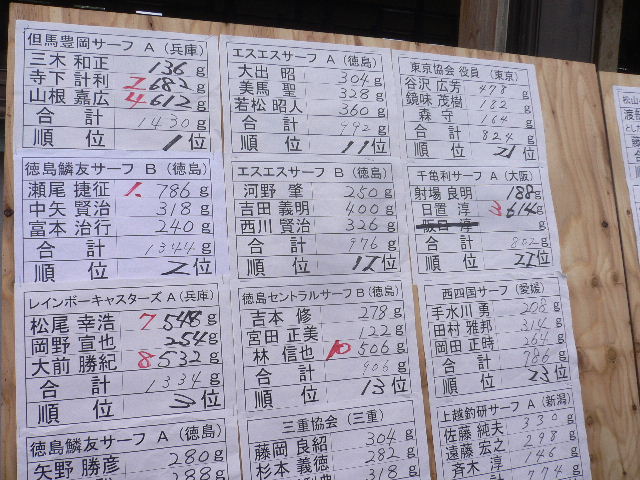 但馬豊岡サーフ A (兵庫)
三木 和正 136 g
寺下 計利 2 682 g
山根 嘉広 4 612 g
合 計 1430 g
順 位 1位
徳島鱗友サーフ B (徳島)
瀬尾 捷征 1. 786 g
中矢 賢治 318 g
富本 治行 240 g
合 計 1344 g
順 位 2位
レインボーキャスターズ A (兵庫)
松尾 幸浩 7 548 g
岡野 宣也 254 g
大前 勝紀 8 532 g
合 計 1334 g
順 位 3位
徳島鱗友サーフ A (徳島)
矢野 勝彦 280 g
288 g
エスエスサーフ A (徳島)
大出 昭 304 g
美馬 聖 328 g
若松 昭人 360 g
合 計 992 g
順 位 11位
エスエスサーフ B (徳島)
河野 肇 250 g
吉田 義明 400 g
西川 賢治 326 g
合 計 976 g
順 位 12位
徳島セントラルサーフ B (徳島)
吉本 修 278 g
宮田 正美 122 g
林 信也 10 506 g
合 計 906 g
順 位 13位
三重協会 (三重)
藤岡 良紹 304 g
杉本 義徳 282 g
318 g
東京協会 役員 (東京)
谷沢 広芳 478 g
鏡味 茂樹 182 g
森 守 164 g
合 計 824 g
順 位 21位
千亀利サーフ A (大阪)
射場 良明 188 g
日置 淳 3 614 g
阪口 淳 g
合 計 802 g
順 位 22位
西四国サーフ (愛媛)
手水川 勇 208 g
田村 雅邦 314 g
岡田 正時 264 g
合 計 786 g
順 位 23位
上越釣研サーフ A (新潟)
佐藤 純夫 330 g
遠藤 宏之 298 g
斉木 淳 146 g
合 計 774 g
松山